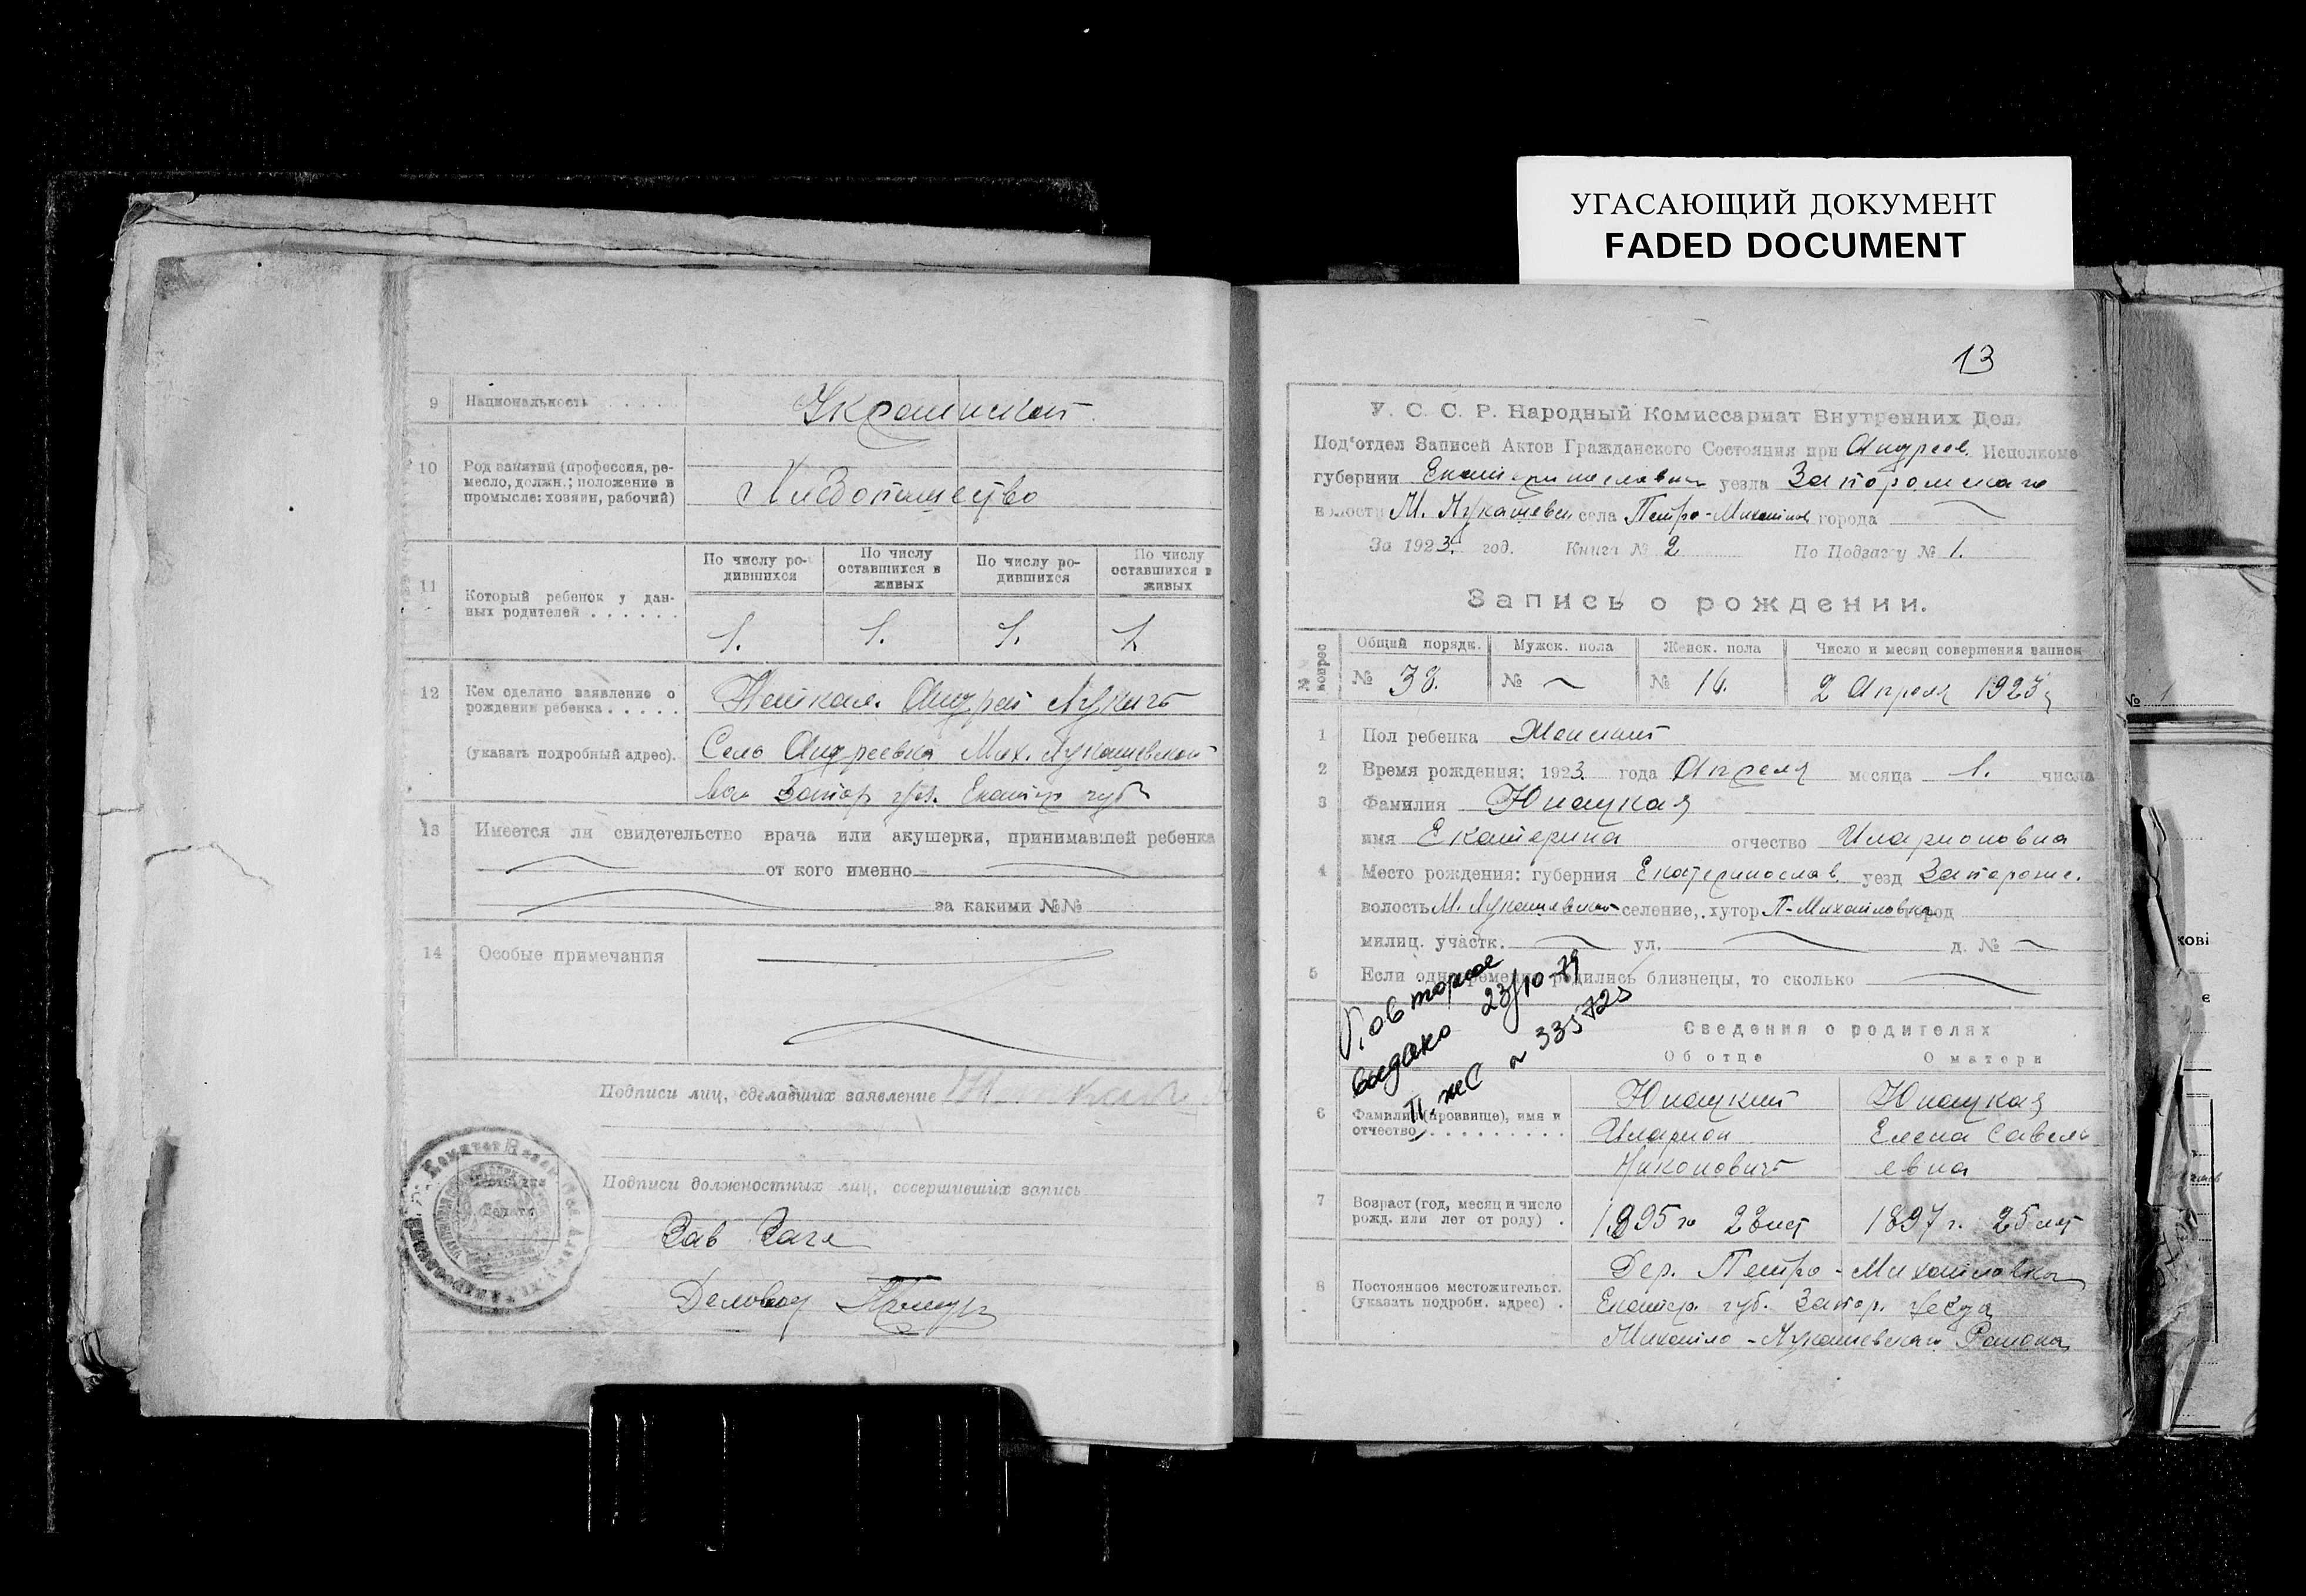 УГАСАЮЩИЙ ДОКУМЕНТ
FADED DOCUMENT
9 Национальность Украинской
10 Род занятий (профессия, ре-
месло, должн.; положение в
промысле: хозяин, рабочий) Хлебопашество
11 Который ребенок у дан-
ных родителей
По числу ро-
дившихся
По числу
оставшихся в
живых
По числу ро-
дившихся
По числу
оставшихся в
живых
1. 1. 1. 1.
12 Кем сделано заявление о
рождении ребенка Андрей Лукичъ
(указать подробный адрес). Село Андреевка Мих. Лукашевской
вол Запор уез. Екатер губ
13 Имеется ли свидетельство врача или акушерки, принимавшей ребенка
от кого именно
за какими №№
14 Особые примечания
Подписи лиц, сделавших заявление
Подписи должностных лиц, совершивших запись
Зав Загс
Деловод
13
У. С. С. Р. Народный Комиссариат Внутренних Дел.
Под‘отдел Записей Актов Гражданского Состояния при Андреев. Исполкоме
губернии Екатеринославск уезда Запорожскаго
волости М. Лукашевск села Петро-Михайлов города
За 1923 год. Книга № 2 По Подзагсу № 1.
Запись о рождении.
№ вопрос
Общий порядк. Мужск. пола Женск. пола Число и месяц совершения записи
№ 38. № № 16. 2 Апреля 1923
1 Пол ребенка Женский
2 Время рождения: 1923 года Апреля месяца 1. числа
3 Фамилия Юнацкая
имя Екатерина отчество Иларионовна
4 Место рождения: губерния Екатеринослав. уезд Запорож.
волость М. Лукашевской селение, хутор П-Михайловка город
милиц. участк. ул. д. №
5 Если одновременно родились близнецы, то сколько
Повторное
выдано 23/10-79
П ЖС № 335725
Сведения о родителях
Об отце О матери
6 Фамилия (прозвище), имя и
отчество
Юнацкий
Иларион
Никоновичъ
Юнацкая
Елена Савель
евна
7 Возраст (год, месяц и число
рожд. или лет от роду) 1895 г 28 лет 1897 г. 25 лет
8 Постоянное местожительст.
(указать подробн. адрес)
Дер. Петро-Михайловка
Екатер. губ. Запор. уезда
Михайло-Лукашевскаго Района